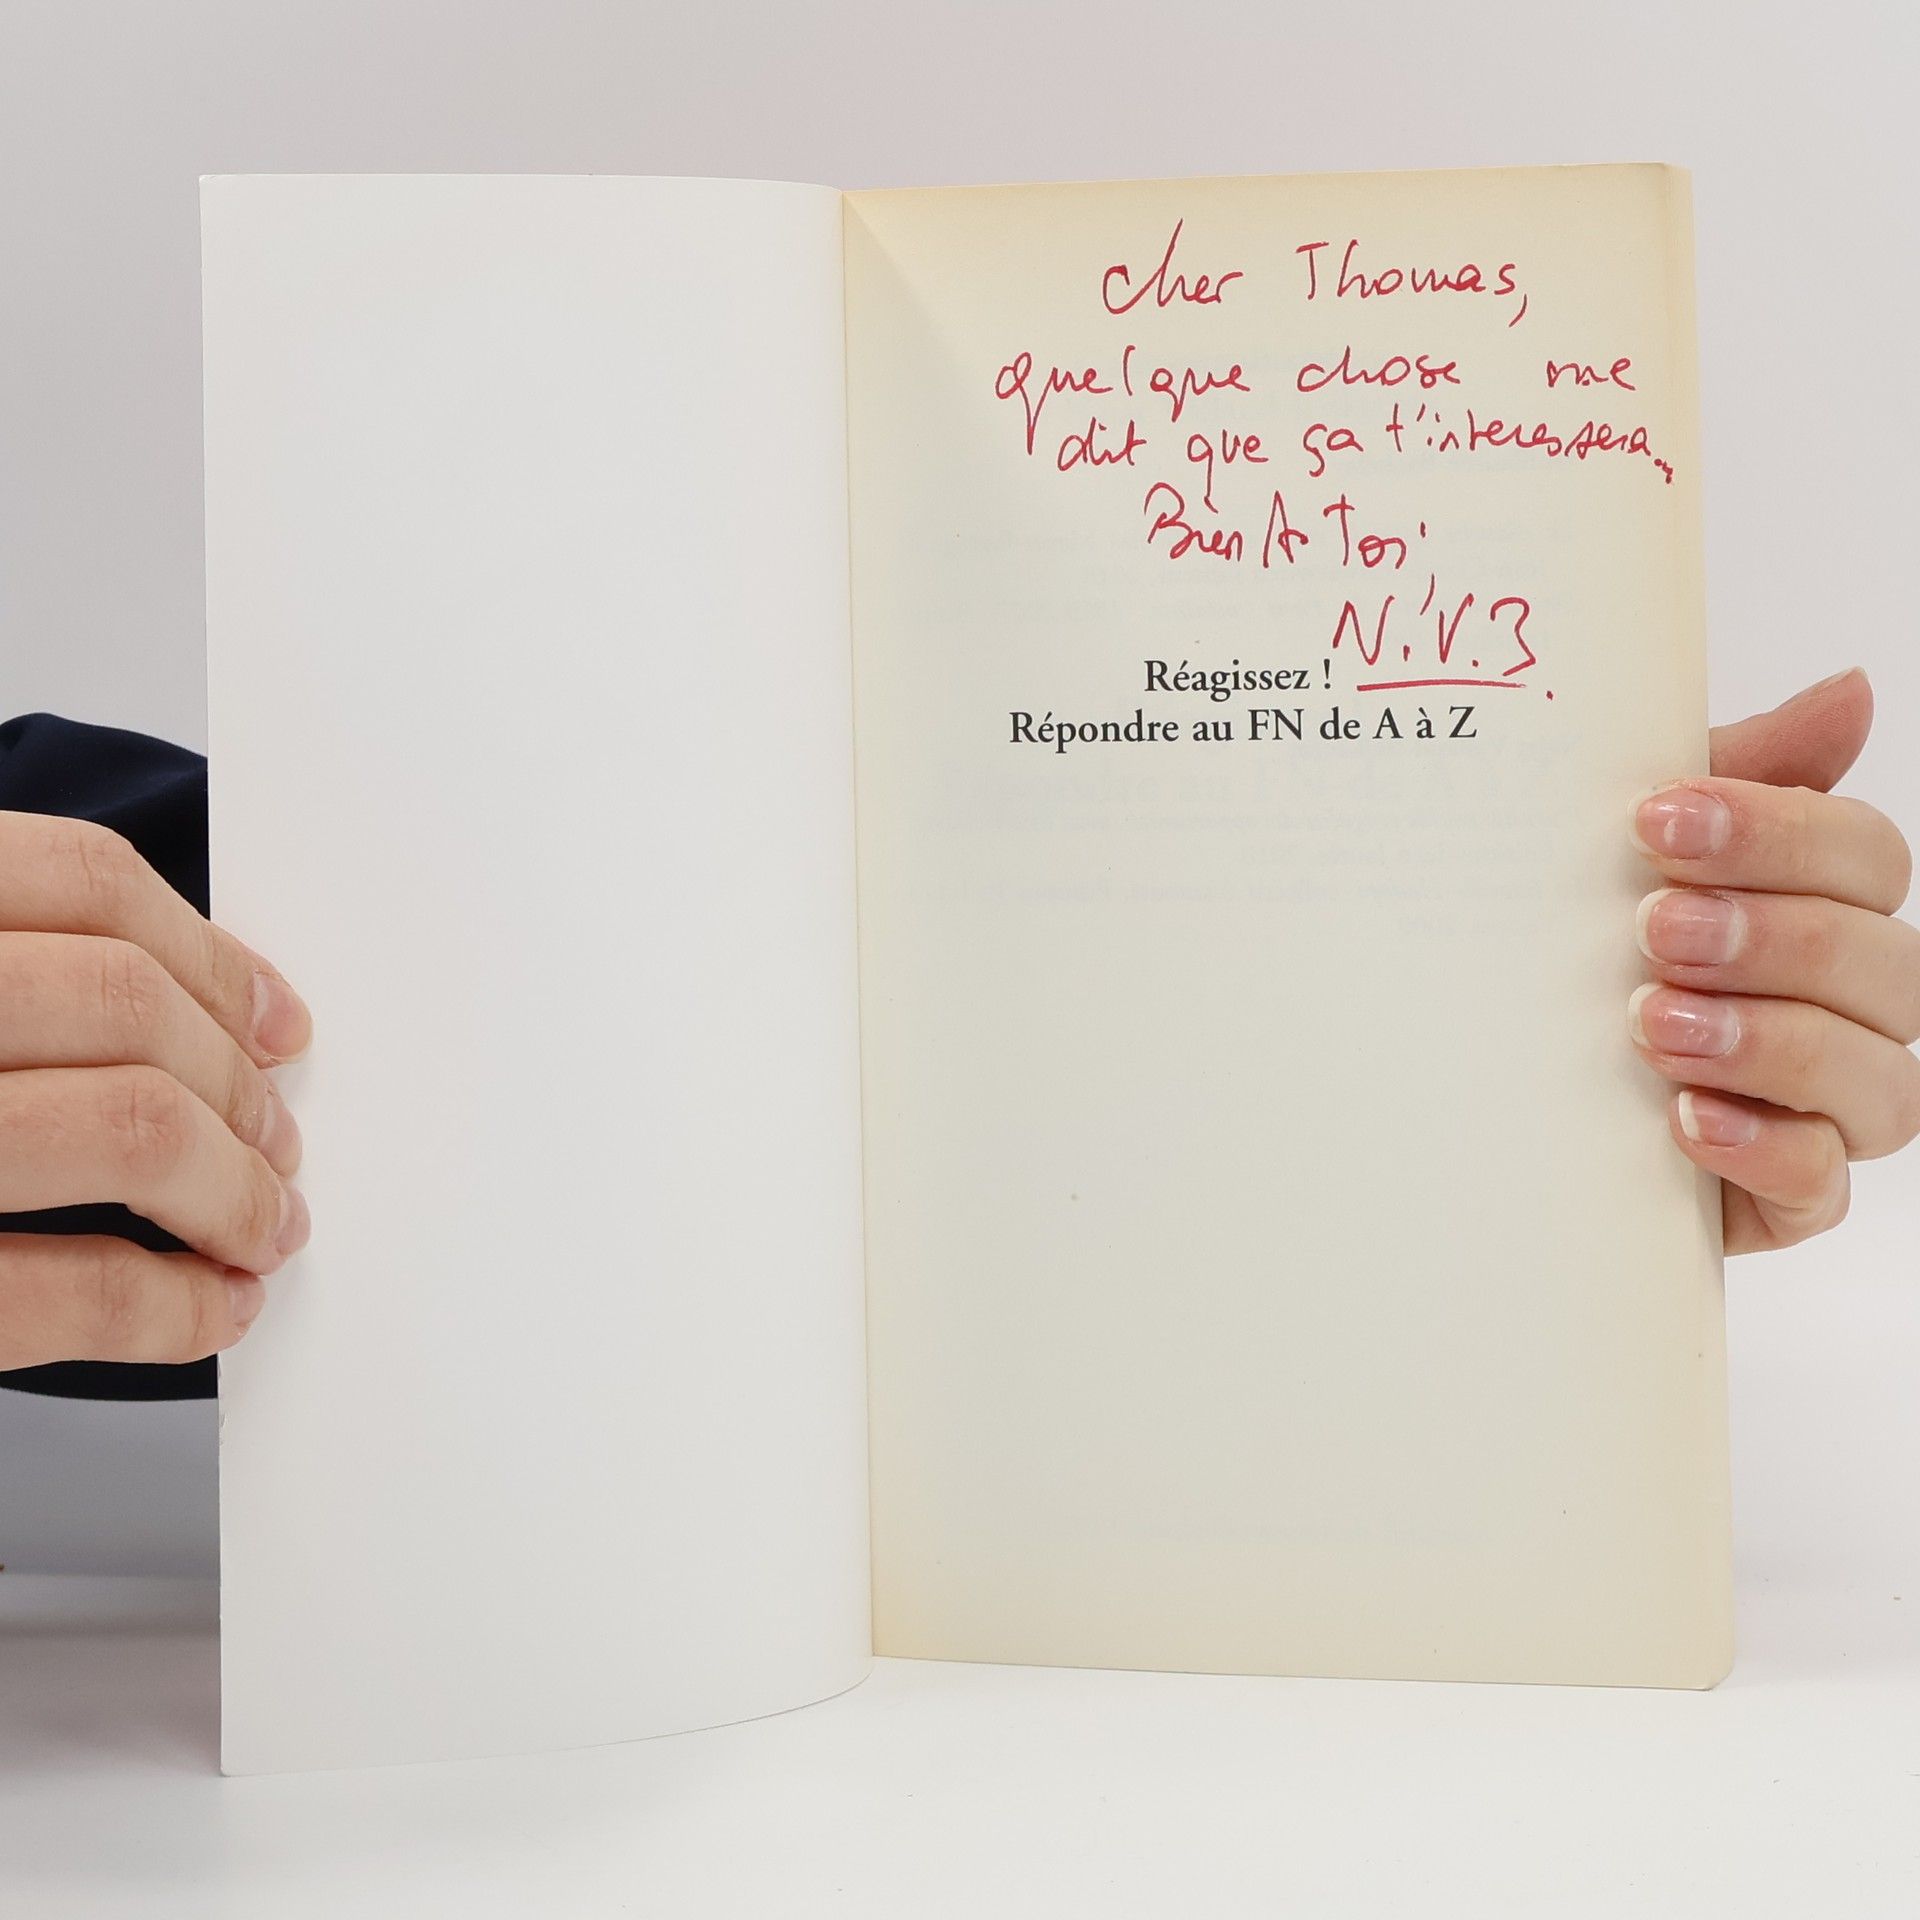 Cher Thomas,
quelque chose me
dit que ça t'interessera...
Bien A Toi,
N.V.3.
Réagissez !
Répondre au FN de A à Z